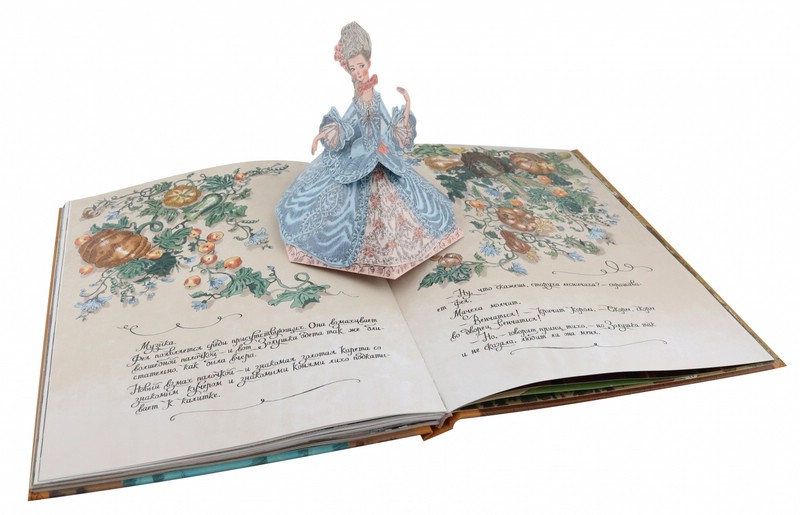 Музыка.
Фея появляется среди присутствующих. Она взмахивает
волшебной палочкой — и вот Золушка одета так же бли-
стательно, как была вчера.
Новый взмах палочкой — и знакомая золотая карета со
знакомым кучером и знакомыми конями лихо подкаты-
вает к калитке.
— Ну, что скажешь, старуха лесничиха? — спрашива-
ет фея.
Мачеха молчит.
— Венчаться! — кричит король. — Скорее, скорее
во дворец венчаться!
— Но, — говорит принц тихо, — но Золушка так
и не сказала, любит ли она меня.